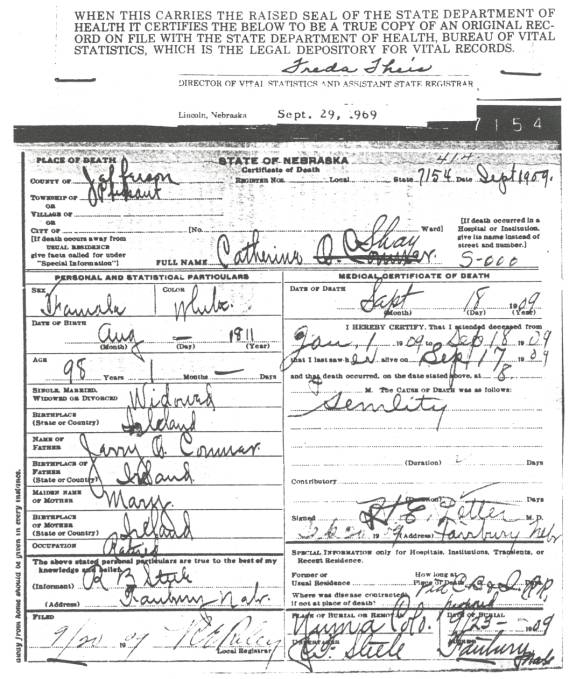 WHEN THIS CARRIES THE RAISED SEAL OF THE STATE DEPARTMENT OF
HEALTH IT CERTIFIES THE BELOW TO BE A TRUE COPY OF AN ORIGINAL REC-
ORD ON FILE WITH THE STATE DEPARTMENT OF HEALTH, BUREAU OF VITAL
STATISTICS, WHICH IS THE LEGAL DEPOSITORY FOR VITAL RECORDS.
Freda Theis
DIRECTOR OF VITAL STATISTICS AND ASSISTANT STATE REGISTRAR
Lincoln, Nebraska Sept. 29, .969
7154
PLACE OF DEATH STATE OF NEBRASKA
COUNTY OF Jefferson Certificate of Death
REGISTER NOS. Local State 7154 Date Sept 1909.
TOWNSHIP OF Pleasant
OR
VILLAGE OF
OR
CITY OF [No. Ward]
[If death occurs away from
USUAL RESIDENCE
give facts called for under
"Special Information"]
[If death occurred in a
Hospital or Institution,
give its name instead of
street and number.]
FULL NAME Catherine O. C. Shay
S-000
PERSONAL AND STATISTICAL PARTICULARS
SEX Female COLOR White
DATE OF BIRTH Aug — 1811
(Month) (Day) (Year)
AGE 98 Years 1 Months — Days
SINGLE, MARRIED,
WIDOWED OR DIVORCED Widowed
BIRTHPLACE
(State or Country) Ireland
NAME OF
FATHER Jarry O. Connar.
BIRTHPLACE OF
FATHER
(State or Country) Ireland
MAIDEN NAME
OF MOTHER Mary
BIRTHPLACE
OF MOTHER
(State or Country) Ireland
OCCUPATION Retired
The above stated personal particulars are true to the best of my
knowledge and belief.
(Informant)
(Address) Fairbury Nebr.
FILED 9/20 1909
Local Registrar
MEDICAL CERTIFICATE OF DEATH
DATE OF DEATH Sept 18 1909
(Month) (Day) (Year)
I HEREBY CERTIFY, That I attended deceased from
Jan, 1 1909 to Sep 18 1909
that I last saw her alive on Sep 17 1909
and that death occurred, on the date stated above, at 8.
M. The CAUSE OF DEATH was as follows:
Senility
(Duration) Days
Contributory
(Duration) Days
Signed M. D.
19 (Address) Fairbury Neb
SPECIAL INFORMATION only for Hospitals, Institutions, Transients, or
Recent Residence.
Former or
Usual Residence
How long at
Place of Death Days
Where was disease contracted
if not at place of death
PLACE OF BURIAL OR REMOVAL DATE OF BURIAL
Yuma Colo. 9/23- 1909
UNDERTAKER ADDRESS
Steele Fairbury Nebr
away from home should be given in every instance.